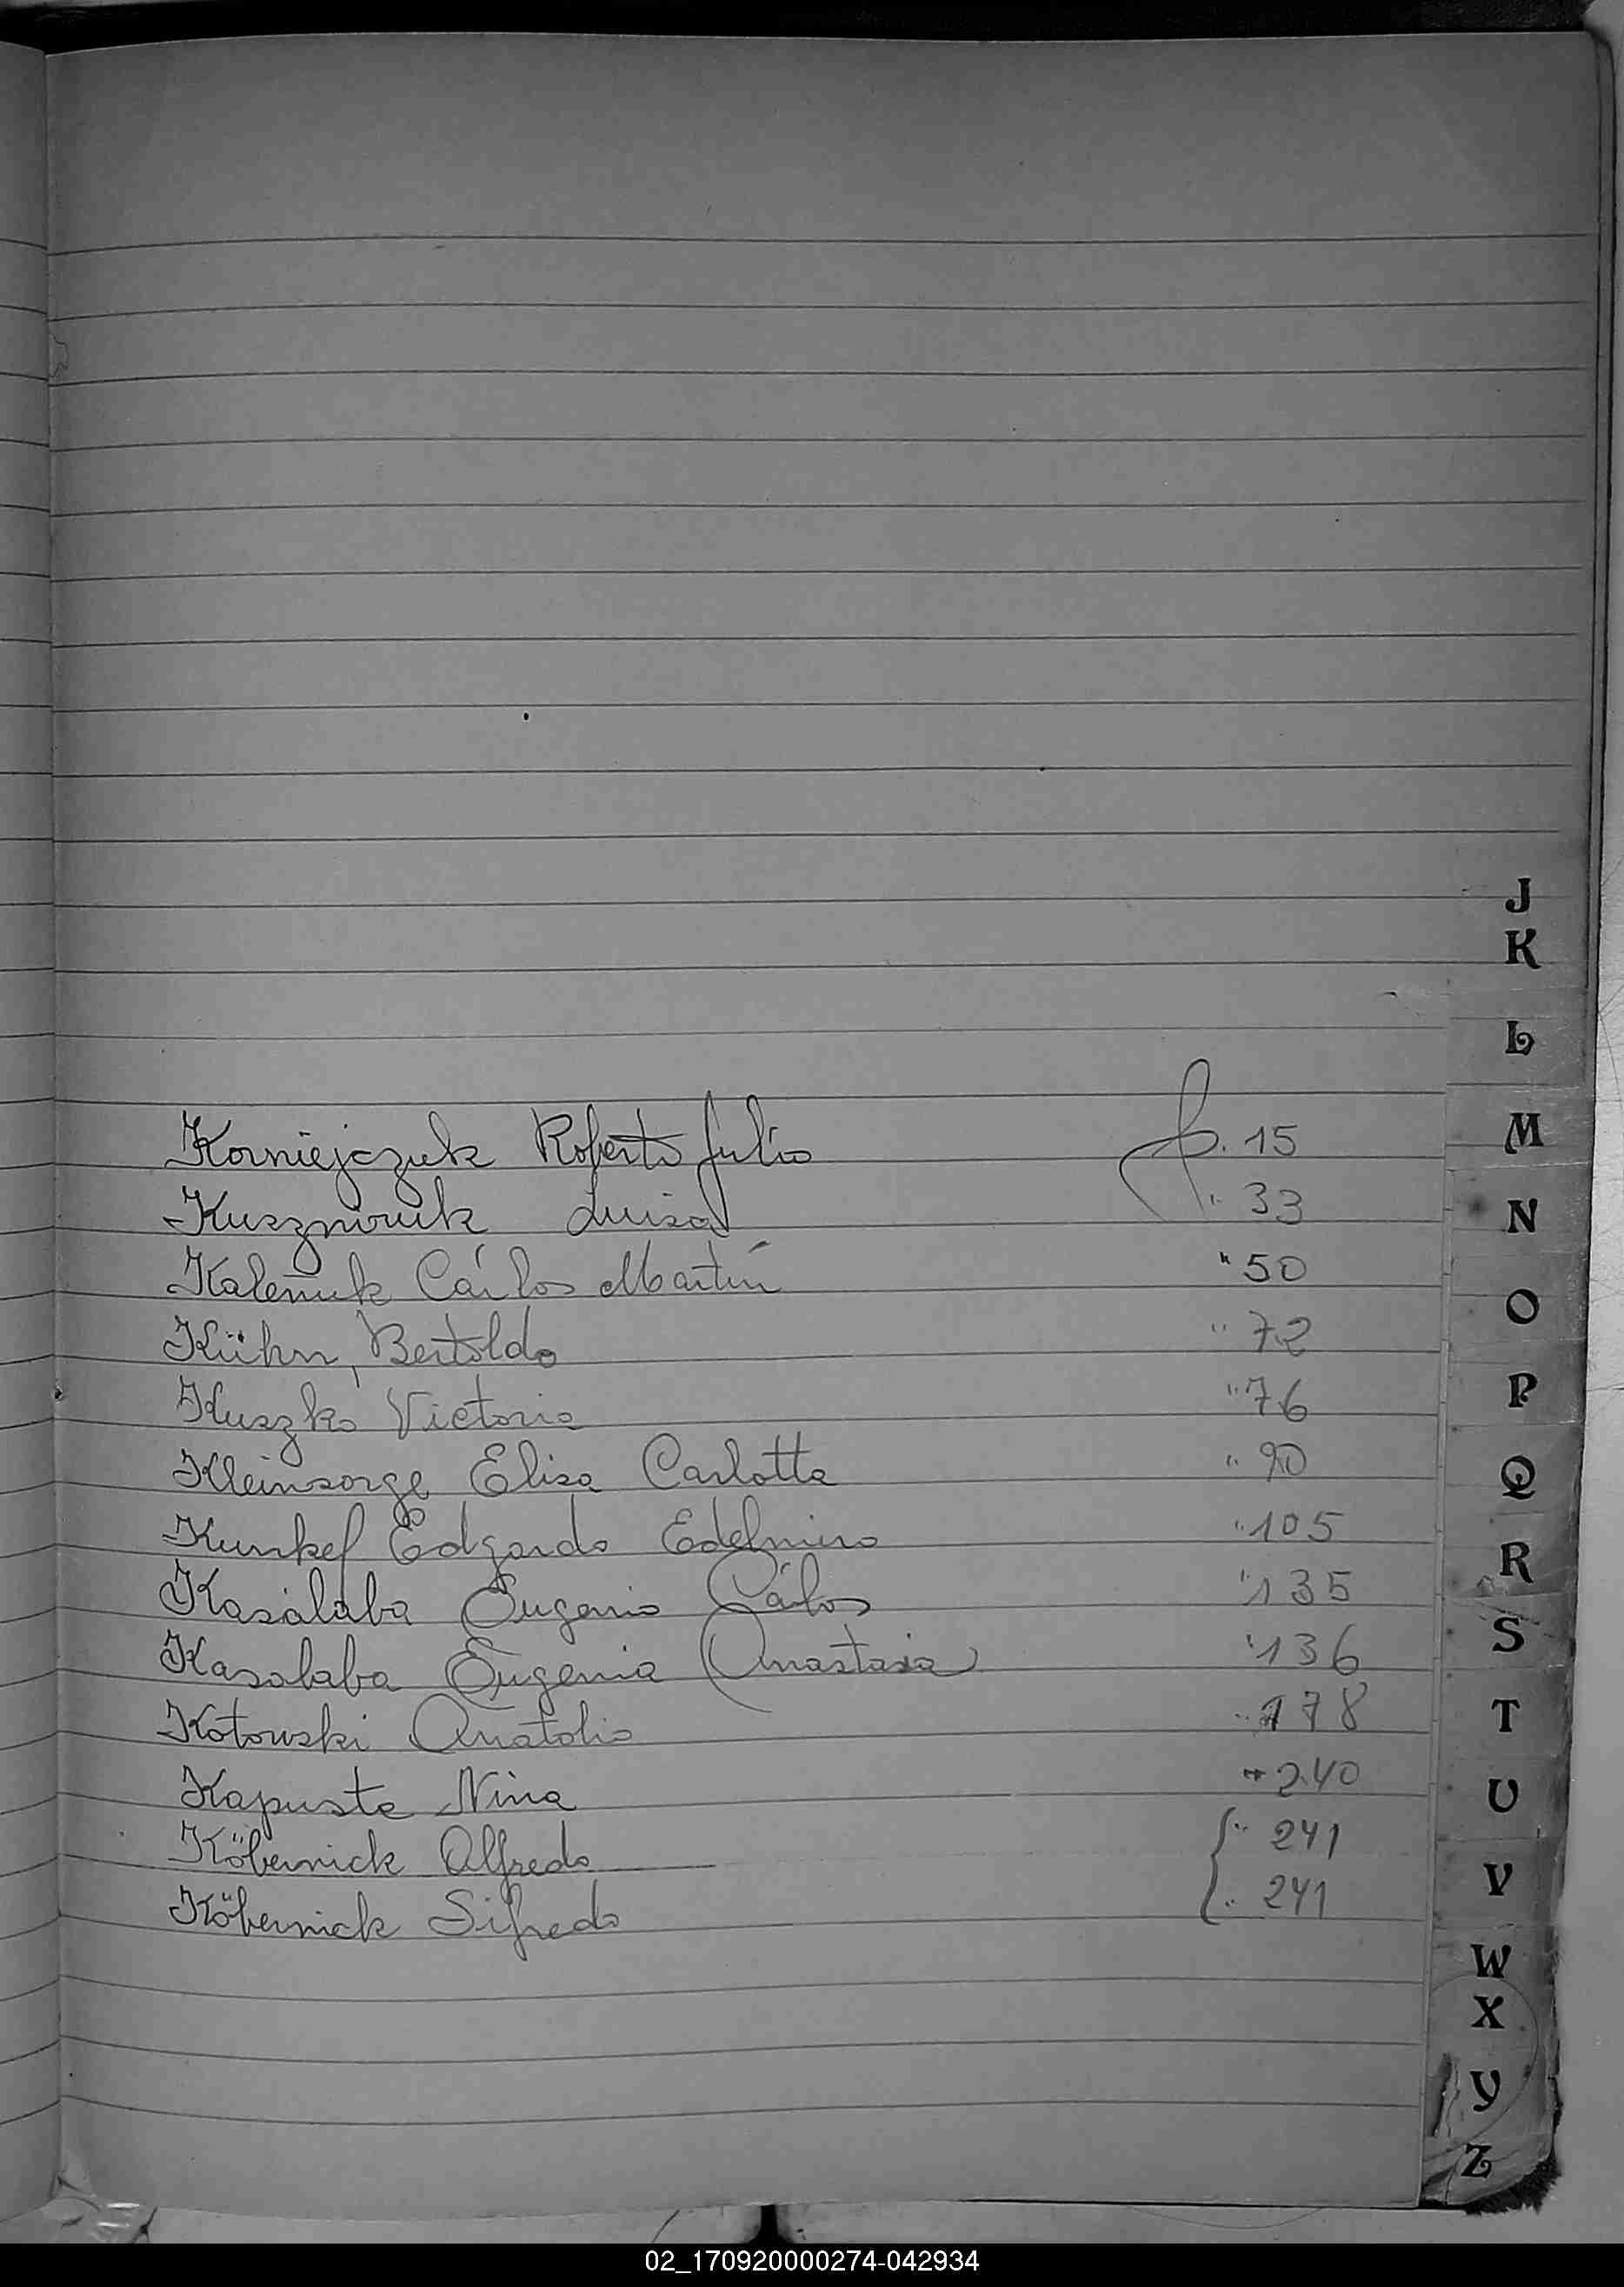 Korniejczuk Roberto Julio p. 15
Kuszniruk Luisa " 33
Kaleñuk Cárlos Martín " 50
Kühn, Bertoldo " 72
Kuszko Victoria " 76
Kleinsorge Elisa Carlotta " 90
Kunkel Edgardo Edelmiro " 105
Kasalaba Eugenio Cárlos " 135
Kasalaba Eugenia Anastasia " 136
Kotowski Anatolio " 178
Kapusta Nina " 240
Köbernick Alfredo " 241
Köbernick Sifredo " 241
J
K
L
M
N
O
P
Q
R
S
T
U
V
W
X
Y
Z
02_170920000274-042934